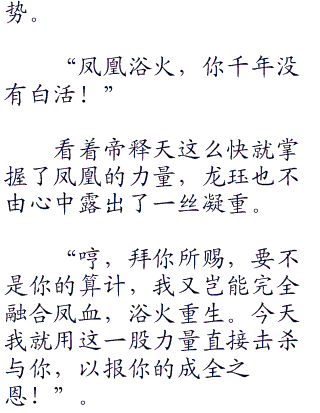 势。
“凤凰浴火，你千年没
有白活！”
看着帝释天这么快就掌
握了凤凰的力量，龙珏也不
由心中露出了一丝凝重。
“哼，拜你所赐，要不
是你的算计，我又岂能完全
融合凤血，浴火重生。今天
我就用这一股力量直接击杀
与你，以报你的成全之
恩！”。